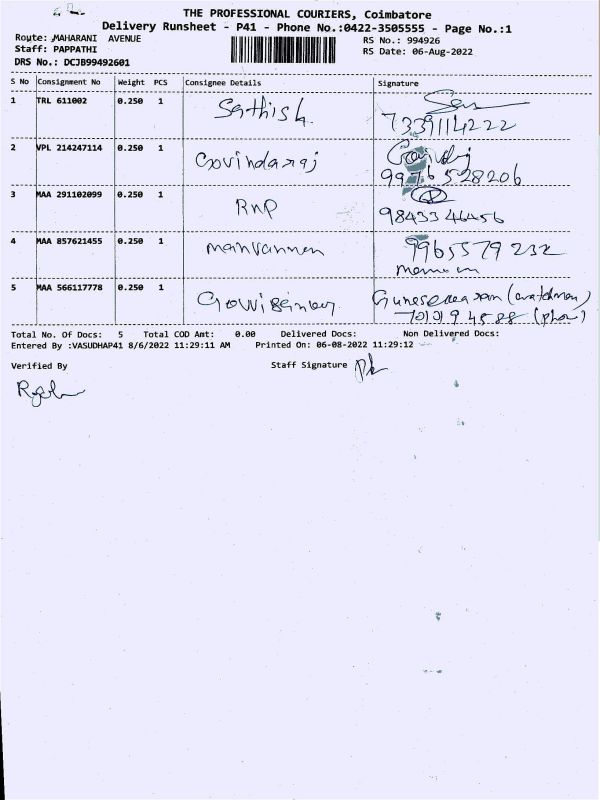 THE PROFESSIONAL COURIERS, Coimbatore
Delivery Runsheet - P41 - Phone No.:0422-3505555 - Page No.:1
Route: MAHARANI AVENUE
RS No.: 994926
Staff: PAPPATHI
RS Date: 06-Aug-2022
DRS No.: DCJB99492601
S No Consignment No Weight PCS Consignee Details Signature
1 TRL 611002 0.250 1 Sathish
7339114222
2 VPL 214247114 0.250 1 Govindaraj
9976528206
3 MAA 291102099 0.250 1 RNP
9843346456
4 MAA 857621455 0.250 1 9965579232
5 MAA 566117778 0.250 1 (watchman)
Total No. Of Docs: 5 Total COD Amt: 0.00 Delivered Docs: Non Delivered Docs:
Entered By :VASUDHAP41 8/6/2022 11:29:11 AM Printed On: 06-08-2022 11:29:12
Verified By Staff Signature